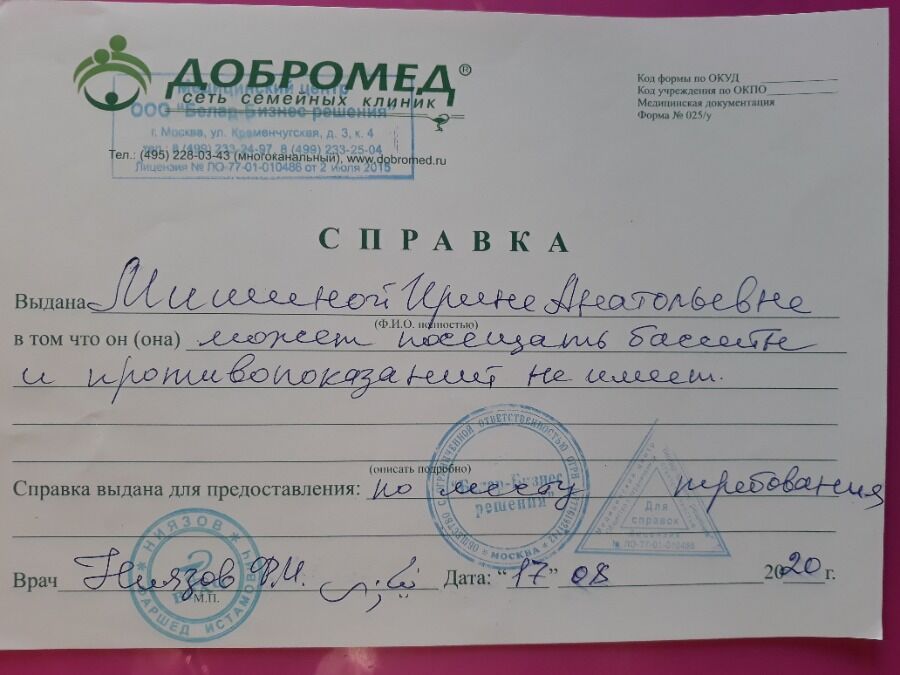 ДОБРОМЕД®
сеть семейных клиник
Медицинский центр
ООО "Белар-Бизнес решения"
г. Москва, ул. Краменчугская, д. 3, к. 4
тел.: 8 (499) 233-24-97, 8 (499) 233-25-04
Тел.: (495) 228-03-43 (многоканальный), www.dobromed.ru
Лицензия № ЛО-77-01-010486 от 2 июля 2015
Код формы по ОКУД
Код учреждения по ОКПО
Медицинская документация
Форма № 025/у
СПРАВКА
Выдана Мишиной Ирине Анатольевне
(Ф.И.О. полностью)
в том что он (она) может посещать бассейн
и противопоказаний не имеет.
(описать подробно)
Справка выдана для предоставления: по месту требования
ОБЩЕСТВО С ОГРАНИЧЕННОЙ ОТВЕТСТВЕННОСТЬЮ ОГРН
"Белар-Бизнес
решения"
* МОСКВА *
Для
справок
№ ЛО-77-01-010486
Врач Ниязов Ф.И.
М.П.
Дата: "17" 08 2020 г.
НИЯЗОВ
ФАРШЕД ИСТАМОВИЧ
ВРАЧ